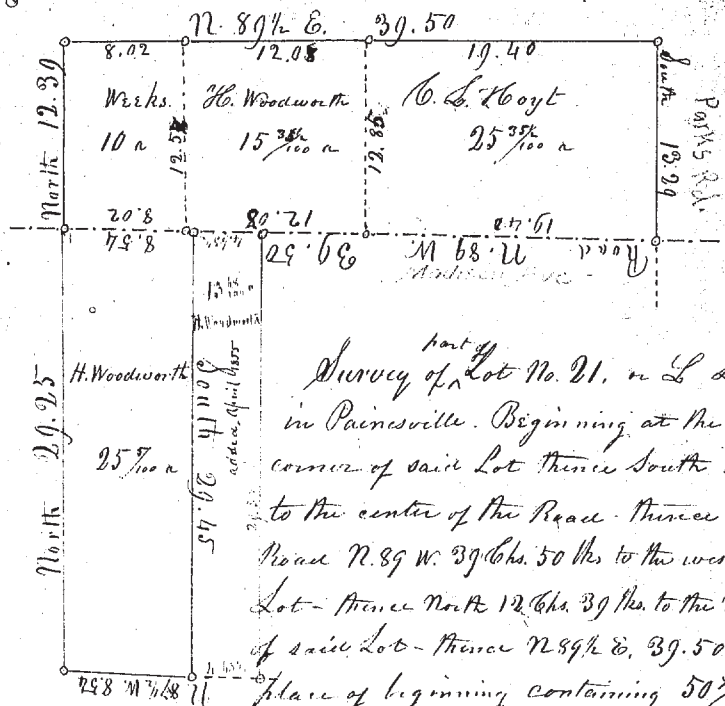 N. 89½ E. 39.50
8.02 12.08 19.40
North 12.39
Weeks. H. Woodworth C. L. Hoyt
10 a 15 35½/100 a 25 35½/100 a
12.85
South 13.29
Parks Rd.
8.02 12.08 19.42
8.54 39.50 N. 89 W. Road
H. Woodworth
H. Woodworth
added, April 1855
South 29.45
North 29.25
25 7/100 a
N 87½ W. 8.54
Survey of part of Lot No. 21. in
in Painesville. Beginning at the
corner of said Lot thence South
to the center of the Road - thence
Road N. 89 W. 39 Chs. 50 lks to the wes
Lot - thence North 12 Chs. 39 lks. to the
of said Lot - thence N 89½ E. 39.50
place of beginning containing 50